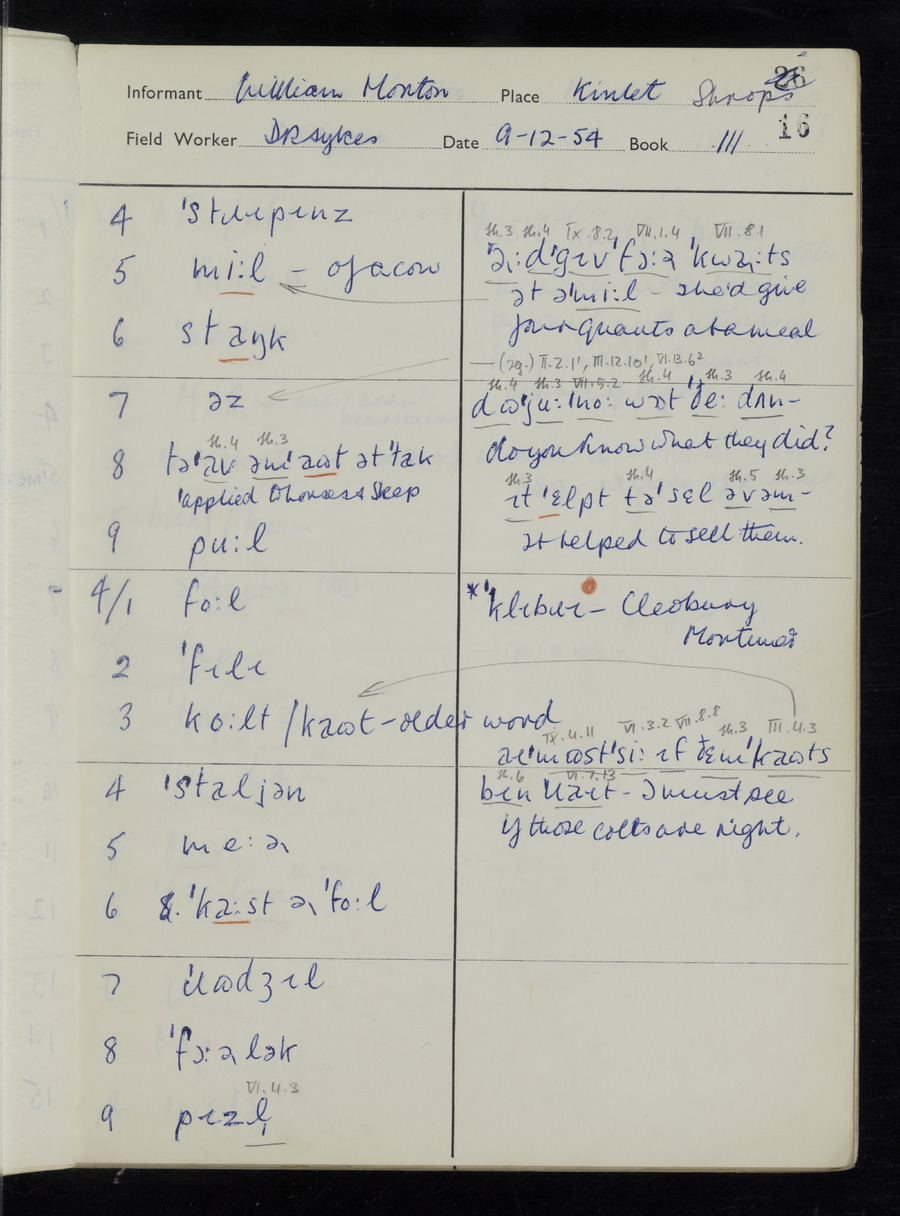 Informant William Morton Place Kinlet Shrops
26
16
Field Worker DRSykes Date 9-12-54 Book III
4 'stɹɪpɪnz
5 mi:l – of a cow
6 staŋk
7 əz
8 tə'av əm'aɷt ət'tak
'applied to horses & sheep
9 pu:l
4/1 fo:l
2 'fɪlɪ
3 ko:lt / kaɷt – older word
4 'staljən
5 me:ə
6 'ka:st fo:l
7 'ɹɷdʒɪl
8 lək
9 pɪzl̩
VI.4.3
sh.4 sh.3
sh.3 sh.4 IX.8.2 VII.1.4 VII.8.1
ət ə'mi:l – she'd give
four quarts at a meal
(sg.) II.2.1', III.12.10', VI.13.6²
sh.4 sh.3 VII.5.2 sh.4 sh.3 sh.4
dɷ'ju:'no: wɒt ðe: dʌn –
do you know what they did?
sh.3 sh.4 sh.5 sh.3
ɪt 'ɛlpt tə'sɛl əvəm –
It helped to sell them.
*'klɪbɹɪ – Cleobury
Mortimer
IX.4.11 VI.3.2 VII.8.8 sh.3 III.4.3
'mɷst'si: ɪf ðɛm'kaɷts
sh.6 VI.7.13
bɪn 'ɹaɪt – I must see
if those colts are right.